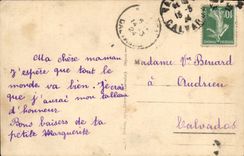 Ma chère maman
J'espère que tout
le monde va bien. Je crois
que j'aurai mon tableau
d'honneur.
Bons baisers de ta
petite Marguerite
Madame Vve Benard
à Audrieu
Calvados
CALVADOS
10